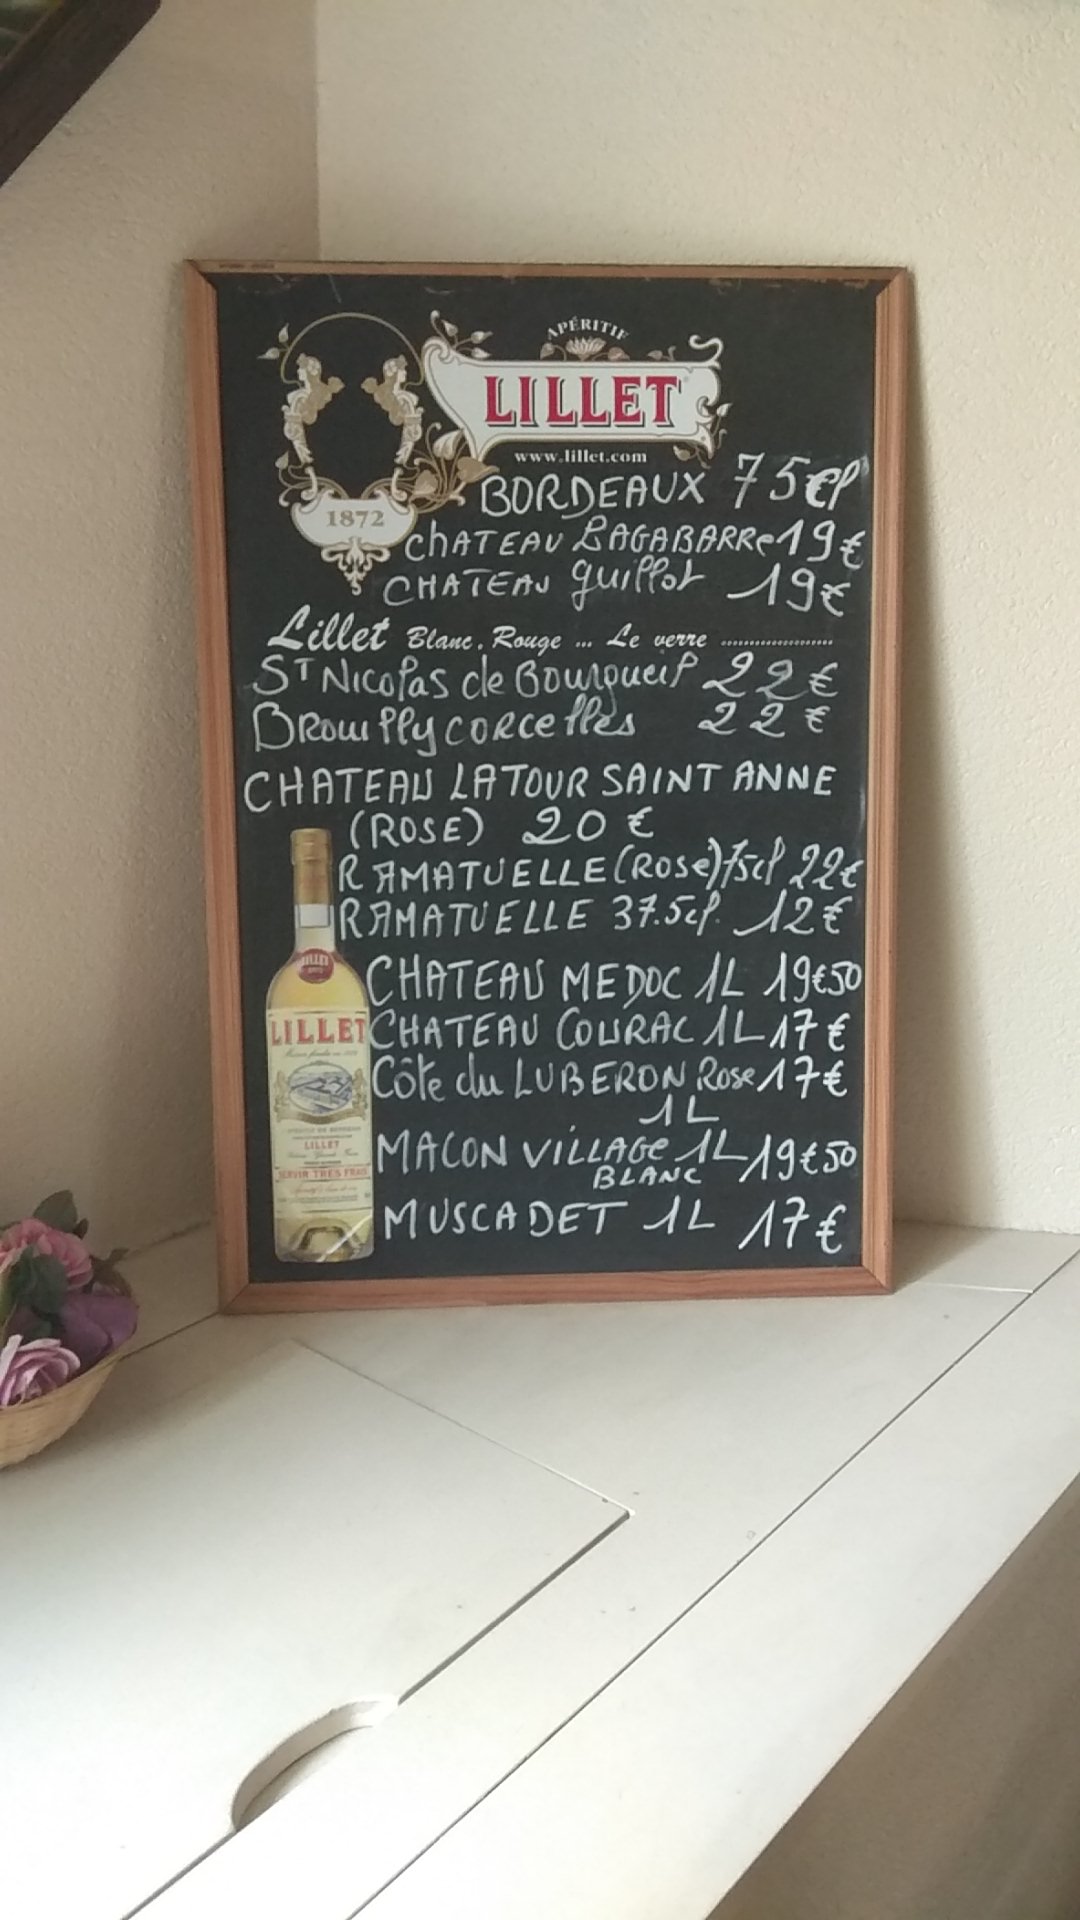 APÉRITIF
LILLET
www.lillet.com
1872
BORDEAUX 75cl
CHATEAU LAGABARRe 19€
CHATEAU guillot 19€
Lillet Blanc. Rouge ... Le verre ....................
ST Nicolas de Bourgueil 22€
Brouilly corcelles 22€
CHATEAU LATOUR SAINT ANNE
(ROSE) 20 €
RAMATUELLE (Rose) 75cl 22€
RAMATUELLE 37.5cl. 12€
CHATEAU MEDOC 1L 19€50
CHATEAU COURAC 1L 17€
Côte du LUBERON Rose 17€
1L
MACON VILLAGE 1L 19€50
BLANC
MUSCADET 1L 17€
LILLET
LILLET
LILLET
SERVIR TRES FRAIS